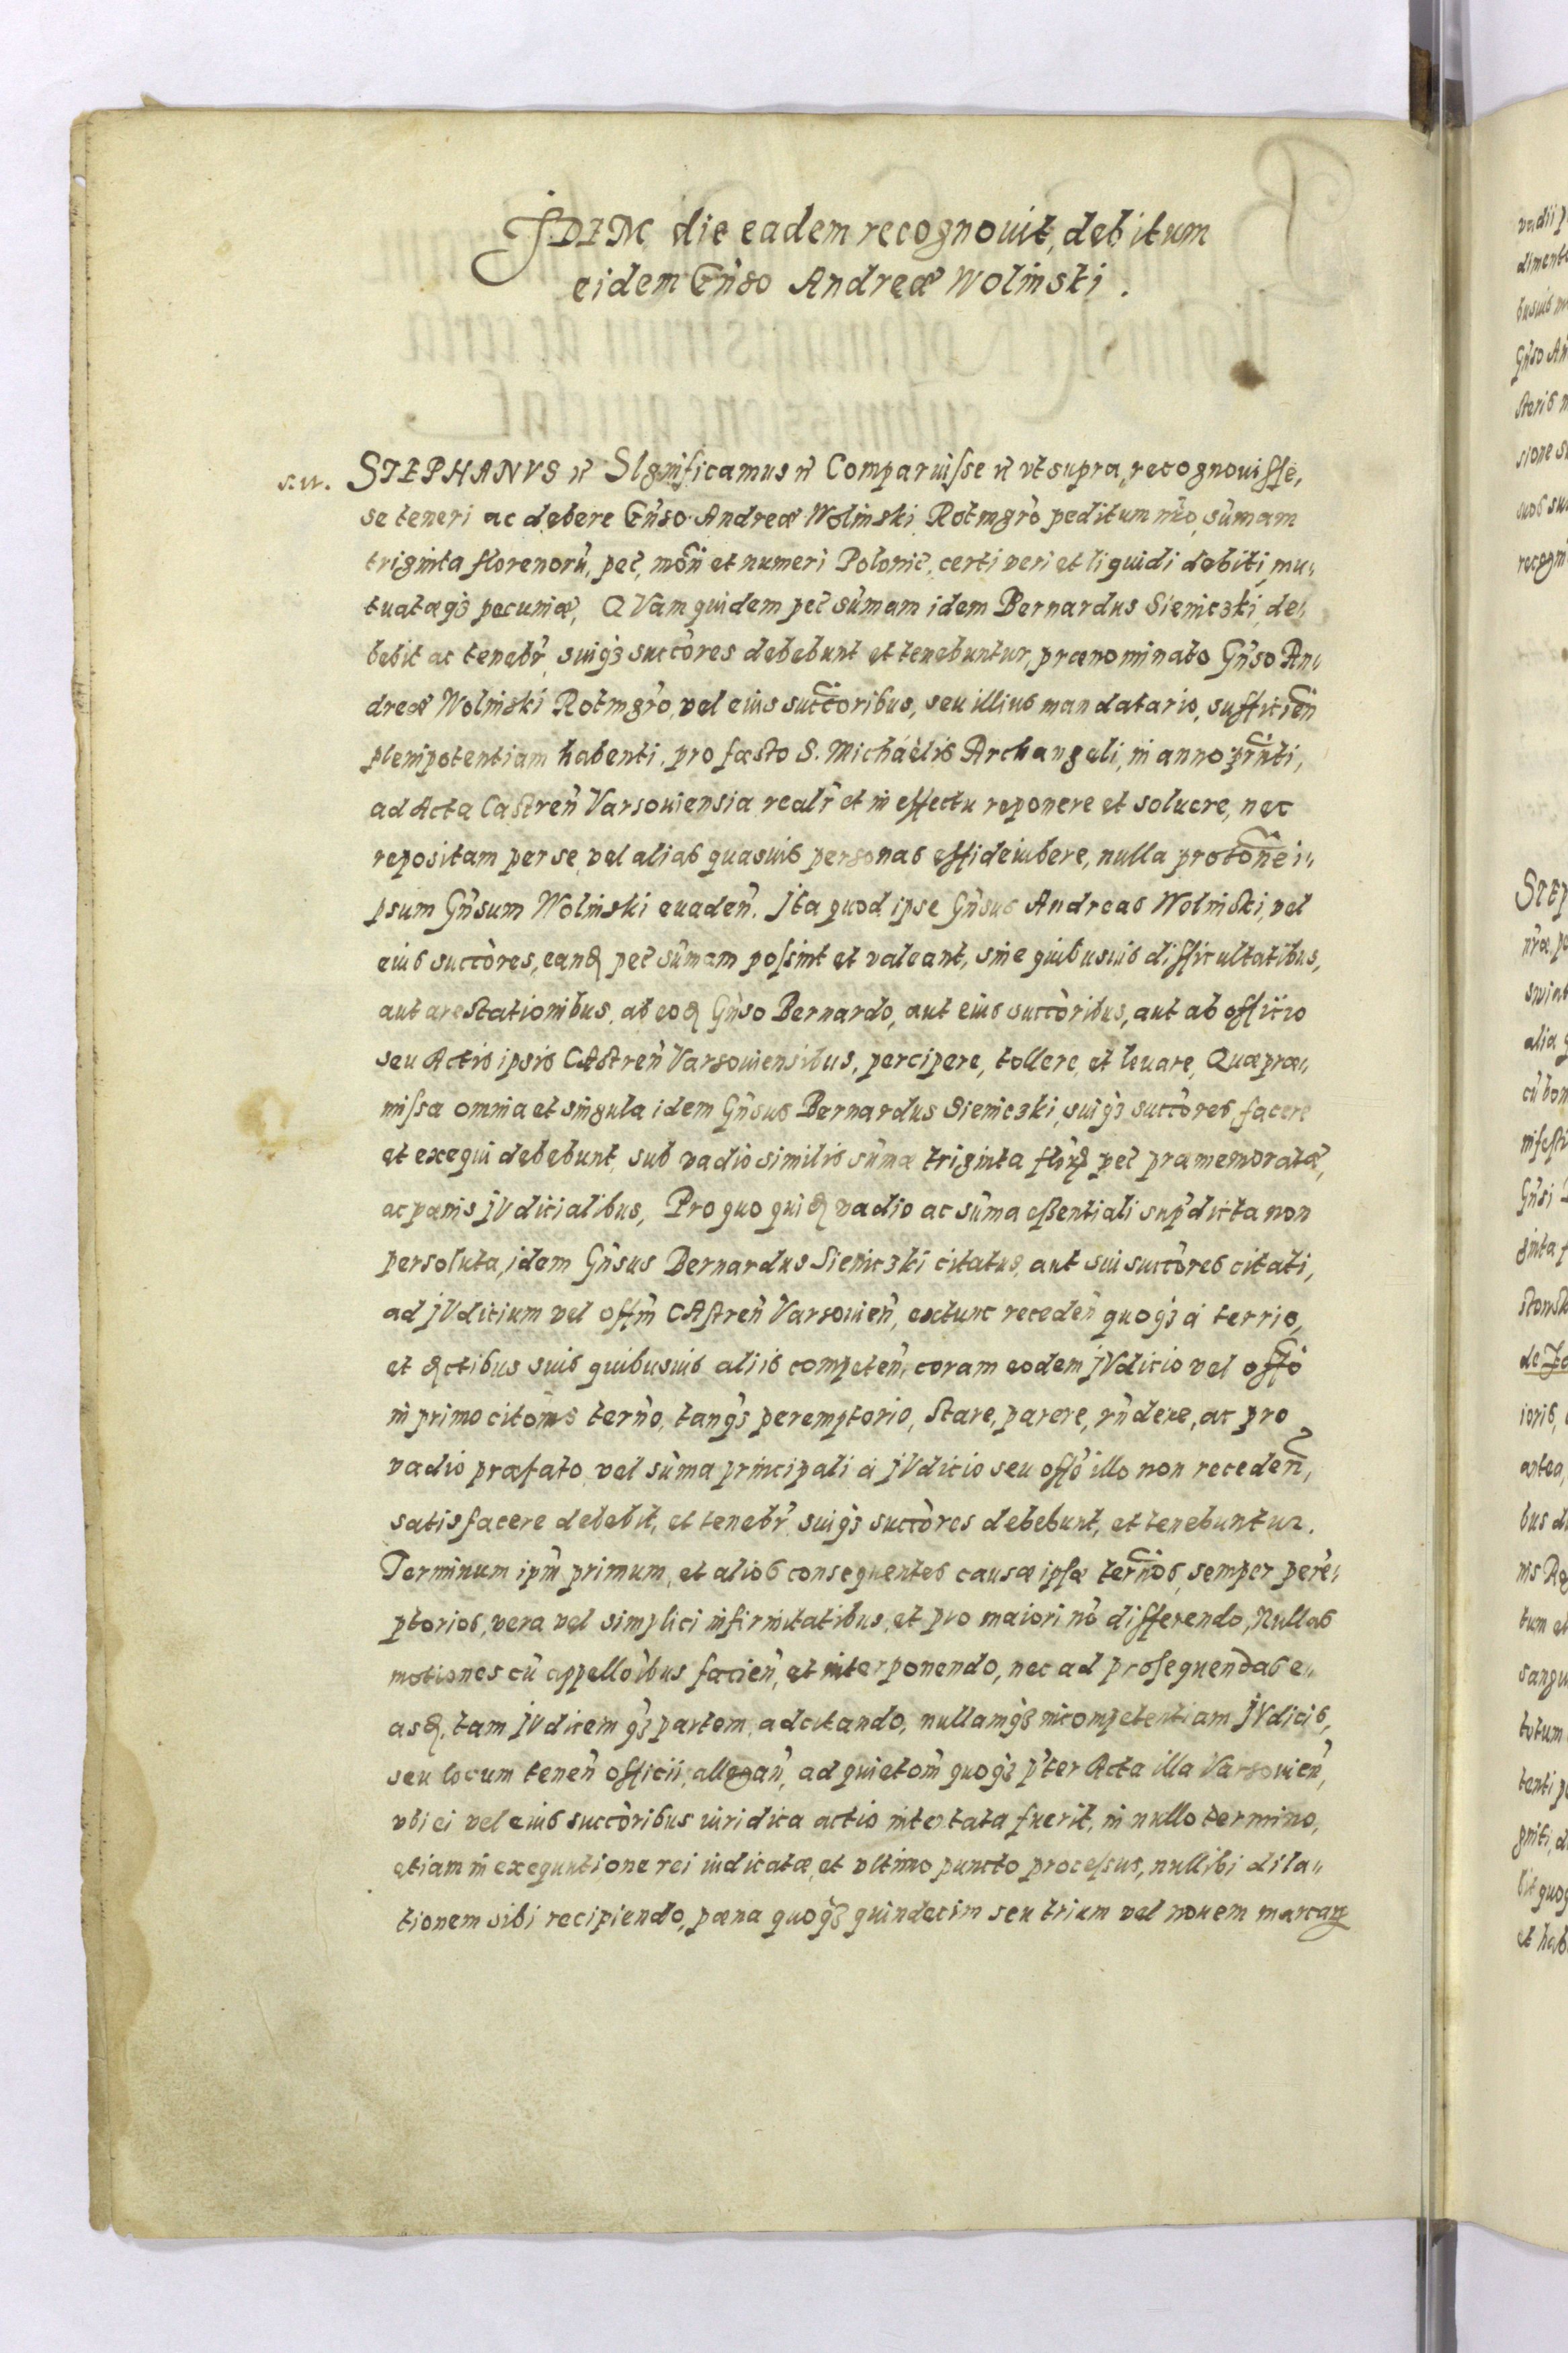 JDEM die eadem recognouit, debitum
eidem Gñso Andreæ Wolinski.
STEPHANVS rc̃ SIgnificamus rc̃ Comparuisse rc̃ vt supra, recognouisse,
se teneri ac debere Gñso Andreæ Wolinski Rotmgro peditum nr̃o, sum̃am
triginta florenorũ, pec̃, moñ et numeri Polonic̃, certi veri et liquidi debiti, mu„
tuatæqȝ pecuniæ, QVam quidem pec̃ sum̃am idem Bernardus Sieniczki, de„
bebit ac tenebr̃, suiqȝ succores debebunt et tenebuntur, prænominato Gñso An„
dreæ Wolinski Rotmgro, vel eius succoribus, seu illius mandatario, sufficieñ
plenipotentiam habenti, pro fæsto S. Michaëlis Archangeli, in anno pr̃nti,
ad Acta Castreñ Varsouiensia realr̃ et in effectu reponere et soluere, nec
repositam per se, vel alias quasuis personas effideiubere, nulla protoñe i„
psum Gñsum Wolinski euadeñ. Jta quod ipse Gñsus Andreas Wolinski, vel
eius succores, eandꝫ pec̃ sum̃am possint et valeant, sine quibusuis difficultatibus,
aut arestationibus, ab eodꝫ Gñso Bernardo, aut eius succoribus, aut ab officio
seu Actis ipsis CAstreñ Varsouiensibus, percipere, tollere, et leuare, Quæ præ„
missa omnia et singula idem Gñsus Bernardus Sieniczki, suiqȝ succores, facere
et exequi debebunt, sub vadio similis sum̃æ triginta floꝝ pec̃ præmemoratæ,
ac pænis jVdicialibus, Pro quo quidꝫ vadio ac sum̃a essentiali supdicta non
persoluta, idem Gñsus Bernardus Sieniczki citatus, aut sui succores citati,
ad jVditium vel offm̃ CAstreñ Varsouieñ, extunc recedeñ quoqȝ á terrio,
et dꝫctibus suis quibusuis aliis competeñ, coram eodem jVdicio vel offo
in primo citonis terno, tanqȝ peremptorio, stare, parere, rñdere, ac pro
vadio præfato, vel sum̃a principali á jVdicio seu offo illo non recedeñ,
satisfacere debebit, et tenebr̃, suiqȝ succores debebunt, et tenebuntur.
Terminum ipm̃ primum, et alios consequentes causæ ipsæ ternos, semper perẽ„
ptorios, vera vel simplici infirmitatibus, et pro maiori nõ differendo, Nullas
motiones cũ appelloibus facieñ, et interponendo, nec ad prosequendas e„
asdꝫ, tam jVdicem qȝ partem, adcitando, nullamqȝ incompetentiam jVdicis,
seu locum teneñ officii, allegañ, ad quietom̃ quoqȝ pter Acta illa Varsouieñ,
vbi ei vel eius succoribus iuridica actio intentata fuerit, in nullo termino,
etiam in exequutione rei iudicatæ, et vltimo puncto processus, nullibi dila„
tionem sibi recipiendo, pæna quoqȝ quindecim seu trium vel nouem marcaꝝ